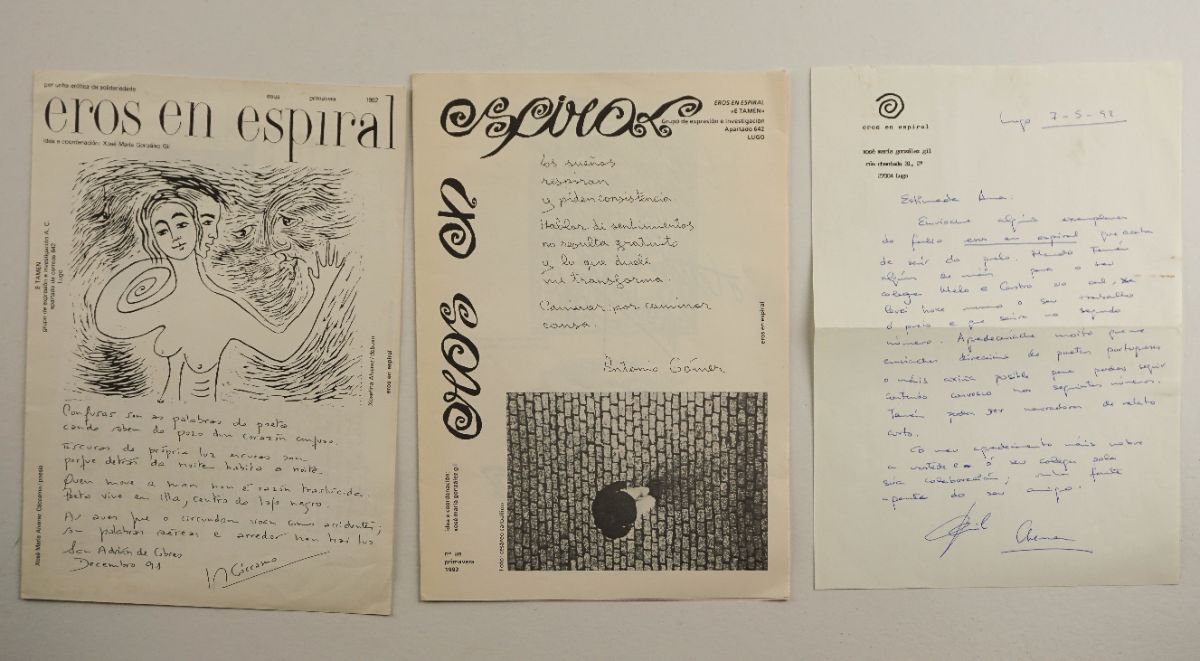 por unha erótica da solidariedade
eous primavera 1992
eros en espiral
idea e coordenación: Xosé María González Gil
E TAMEN
grupo de expresión e investigación A. C.
apartado de correos 642
Lugo
Xosefina Alvarez/debuxo
eros en espiral
Xosé María Alvarez Cáccamo/poesía
Confusas son as palabras do poeta
cando saben do pozo dun corazón confuso.
Escuras de propria luz escuras son
porque detrás da noite habita a noite.
Quen move a man non é razón
Preto vive en illa, centro do lago negro.
As aves que o circundan voan como accidentes;
son palabras aéreas e arredor non hai luz
San Adrián de Cobres
Decembro 91
Cáccamo
eros en espiral
EROS EN ESPIRAL
«E TAMEN»
Grupo de expresión e investigación
Apartado 642
LUGO
Los sueños
respiran
y piden consistencia.
Hablar de sentimientos
no resulta gratuito
y lo que duele
me transforma.
Caminar por caminar
cansa.
Antonio Gómez
eros en espiral
idea e coordenación:
xosé maría gonzález gil
nº un
primavera
1992
Foto: cesáreo
eros en espiral
xosé maría gonzález gil
rúa chantada 31, 2º
27004 lugo
Lugo 7-5-92
Estimada Ana:
Envíoche algúns exemplares
do eros en espiral que acaba
de saír do prelo. Mando tamén
algún de máis para o seu
colega Melo e Castro
hoxe o seu traballo
ó prelo e que sairá no segundo
número. Agradeceríache moito que me
enviaches direccións de poetas portugueses
o máis axiña posible para poder seguir
contando convosco nos seguintes números.
Tamén poden ser narradores de relato
curto.
Co meu agradecimento máis nobre
a vostede e ó seu colega pola
súa colaboración,
do seu amigo.